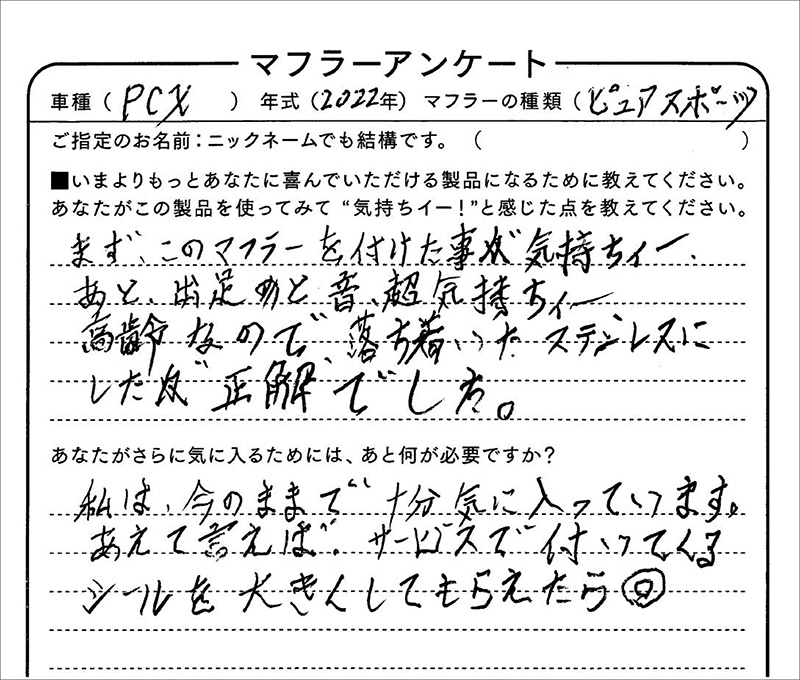 マフラーアンケート
車種（PCX）年式（2022年）マフラーの種類（ピュアスポーツ
ご指定のお名前：ニックネームでも結構です。（　　　）
■いまよりもっとあなたに喜んでいただける製品になるために教えてください。
あなたがこの製品を使ってみて“気持ちイー！”と感じた点を教えてください。
まず、このマフラーを付けた事が気持ちィー、
あと、出足のと音、超気持ちィー
高齢なので、落ち着いたステンレスに
したが正解でした。
あなたがさらに気に入るためには、あと何が必要ですか？
私は、今のままで十分気に入っています。
あえて言えば、サービスで付いてくる
シールを大きくしてもらえたら◎